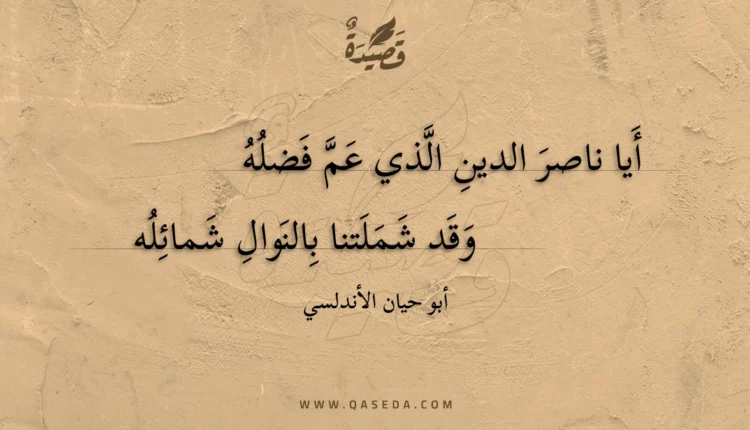 قَصِيْدَةٌ
أَيا ناصرَ الدينِ الَّذي عَمَّ فَضلُهُ
وَقَد شَمَلَتنا بِالنَوالِ شَمائِلُه
أبو حيان الأندلسي
WWW.QASEDA.COM